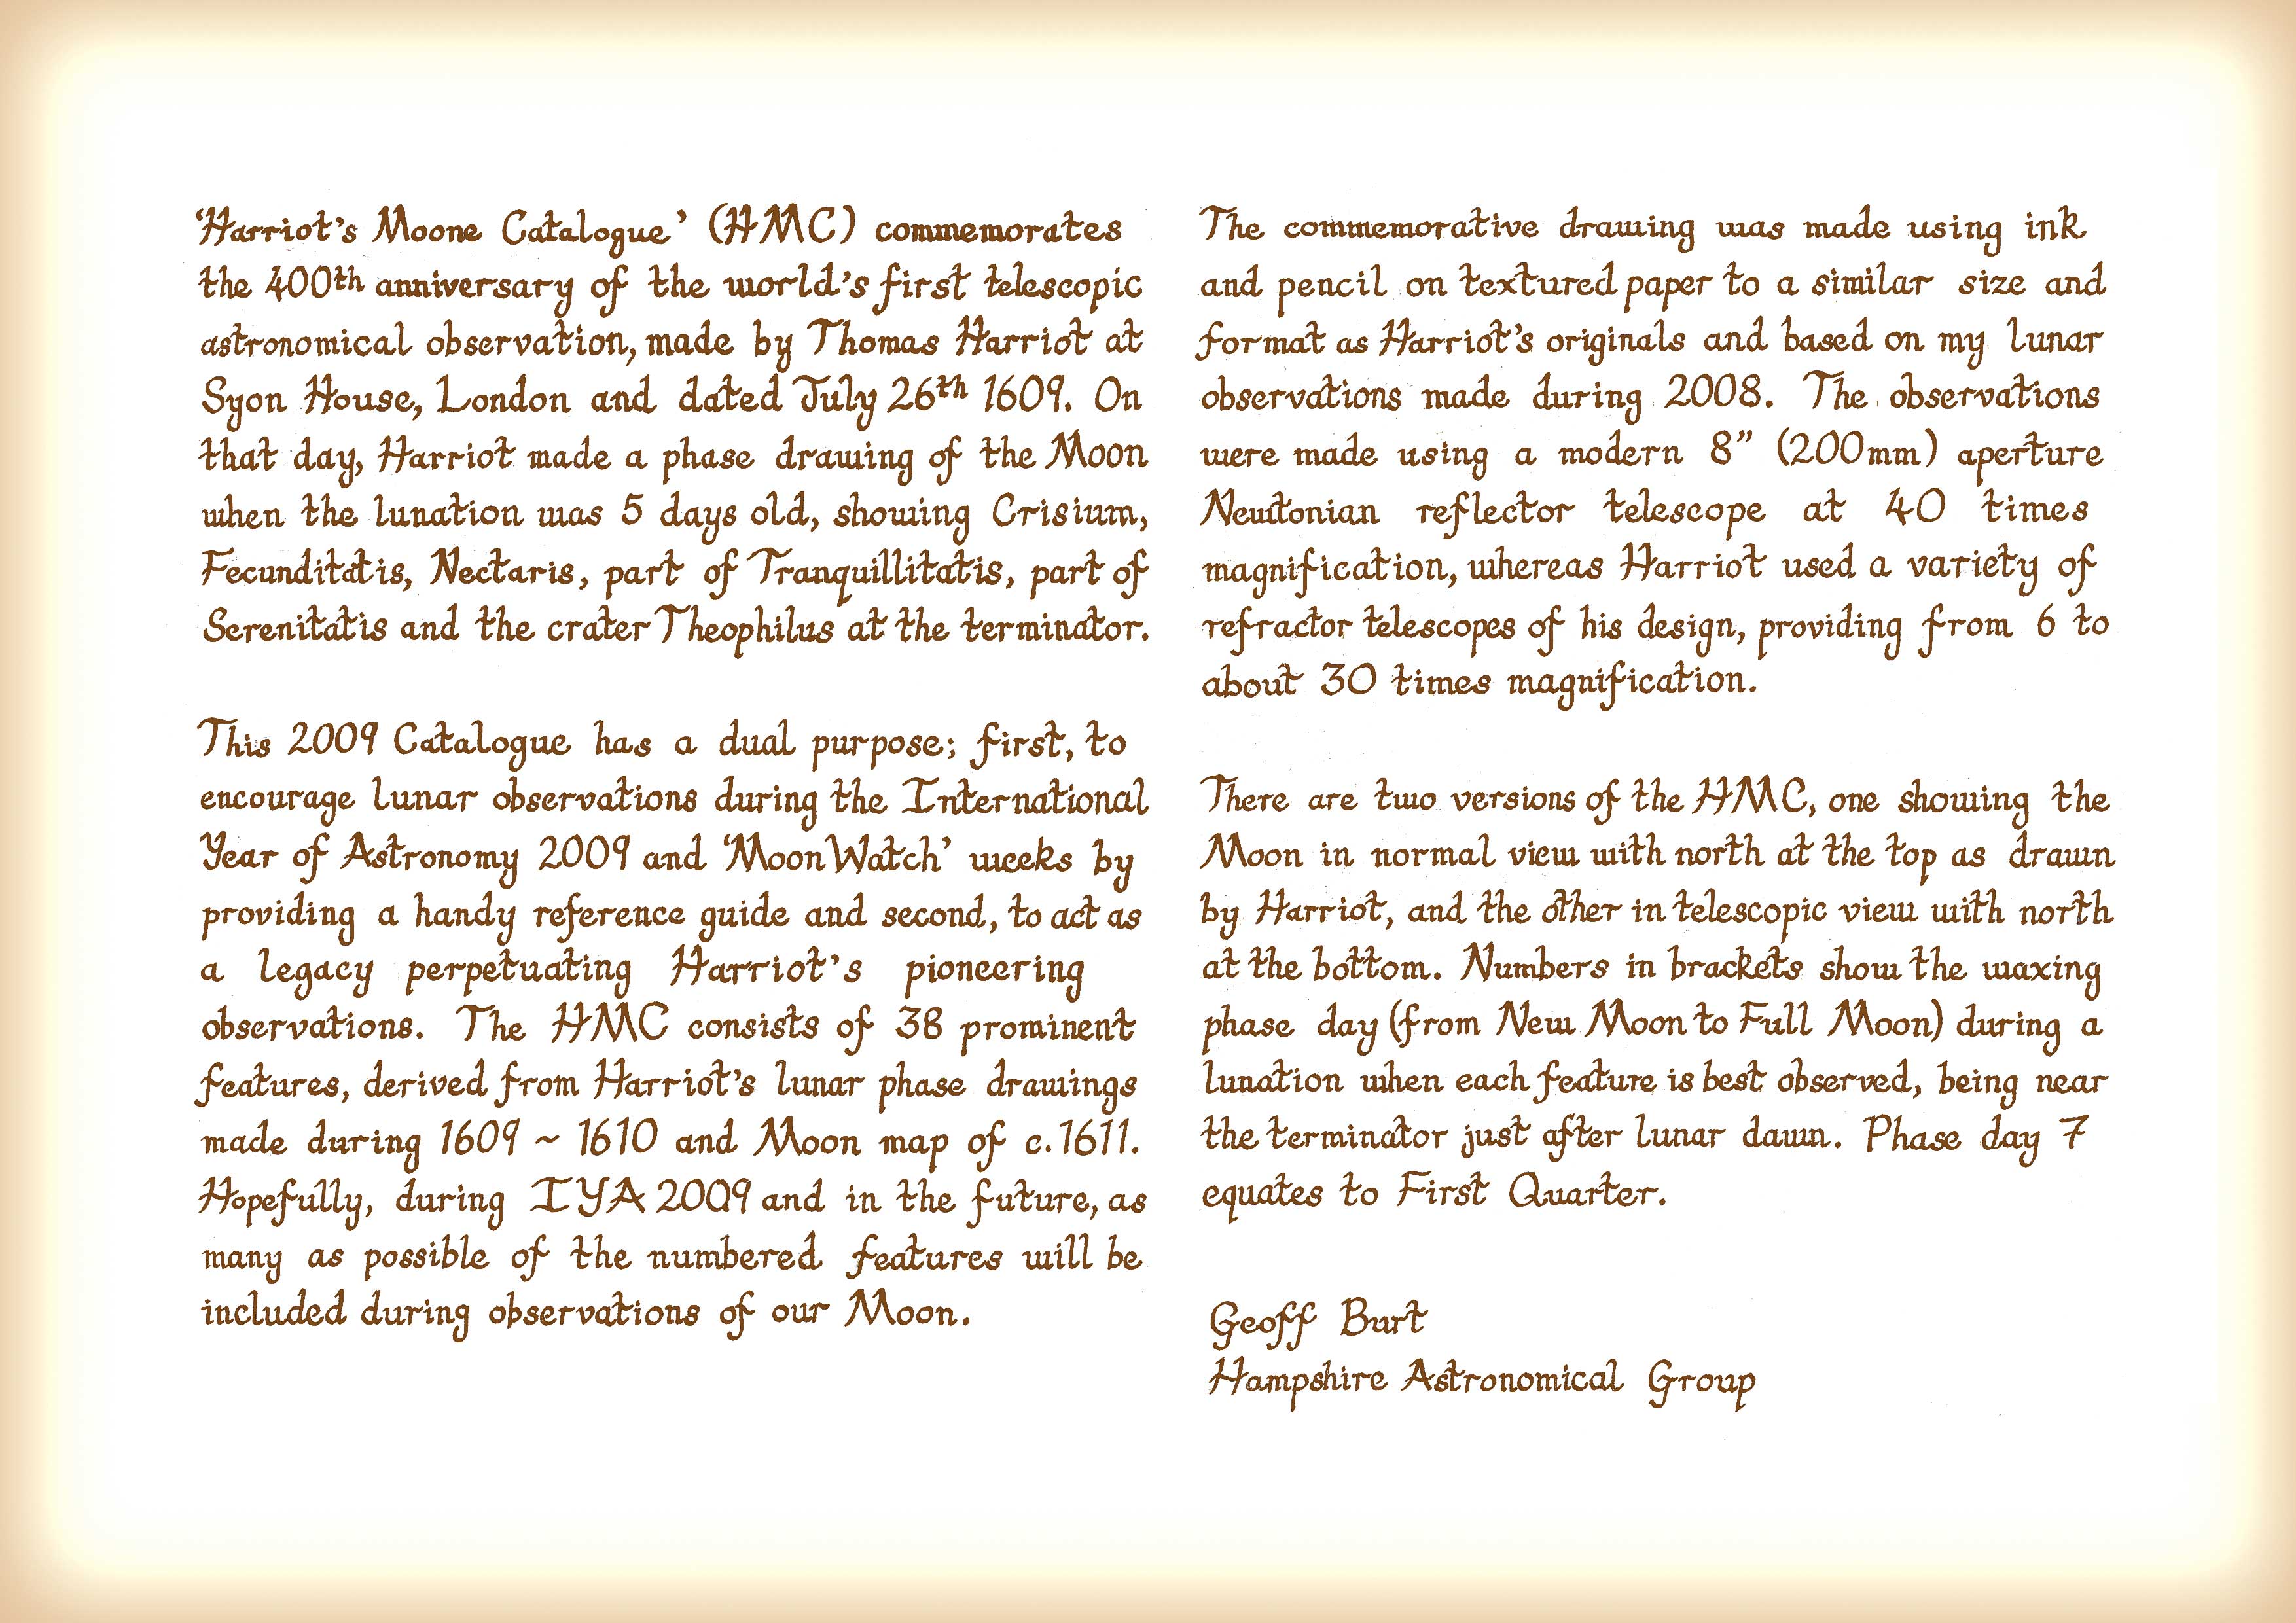 ‘Harriot’s Moone Catalogue’ (HMC) commemorates
the 400th anniversary of the world’s first telescopic
astronomical observation, made by Thomas Harriot at
Syon House, London and dated July 26th 1609. On
that day, Harriot made a phase drawing of the Moon
when the lunation was 5 days old, showing Crisium,
Fecunditatis, Nectaris, part of Tranquillitatis, part of
Serenitatis and the crater Theophilus at the terminator.
This 2009 Catalogue has a dual purpose; first, to
encourage lunar observations during the International
Year of Astronomy 2009 and ‘MoonWatch’ weeks by
providing a handy reference guide and second, to act as
a legacy perpetuating Harriot’s pioneering
observations. The HMC consists of 38 prominent
features, derived from Harriot’s lunar phase drawings
made during 1609 ~ 1610 and Moon map of c.1611.
Hopefully, during IYA 2009 and in the future, as
many as possible of the numbered features will be
included during observations of our Moon.
The commemorative drawing was made using ink
and pencil on textured paper to a similar size and
format as Harriot’s originals and based on my lunar
observations made during 2008. The observations
were made using a modern 8” (200mm) aperture
Newtonian reflector telescope at 40 times
magnification, whereas Harriot used a variety of
refractor telescopes of his design, providing from 6 to
about 30 times magnification.
There are two versions of the HMC, one showing the
Moon in normal view with north at the top as drawn
by Harriot, and the other in telescopic view with north
at the bottom. Numbers in brackets show the waxing
phase day (from New Moon to Full Moon) during a
lunation when each feature is best observed, being near
the terminator just after lunar dawn. Phase day 7
equates to First Quarter.
Geoff Burt
Hampshire Astronomical Group